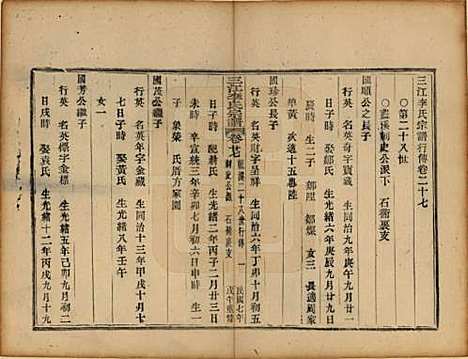 三江李氏宗譜行傳卷二十七
○第二十八世
○藍溪制史公派下 石衕裏支
國順公之長子
行英 名 字 生同治九年庚午九月
時 配鄒氏 生光緒六年庚辰九月廿九日
辰時 生二子 鄒陞 鄒燦 女三 長適周家
華黃 次適十五甲暮陸
國珍公長子
行英 名財 字呈祥 生同治六年丁卯十月初五
三江李氏宗譜
卷廿七
藍溪二十八世行傳 一
制史公派 石衕裏支
民國七年
戊午重修
日戌時 配耕氏 生光緒二年丙子二月廿三日
未時 卒宣統三年辛亥七月初六日申時 生一
子 榮 氏厝方家園
國茂公繼子
行英 名 字金藏 生同治十三年甲戌十月十
七日子時 娶袁氏 生光緒八年壬午
女一
國芳公繼子
行英 名標 字金藏 生光緒五年己卯三月初六
日戌時 娶袁氏 生光緒十二年丙戌九月十九